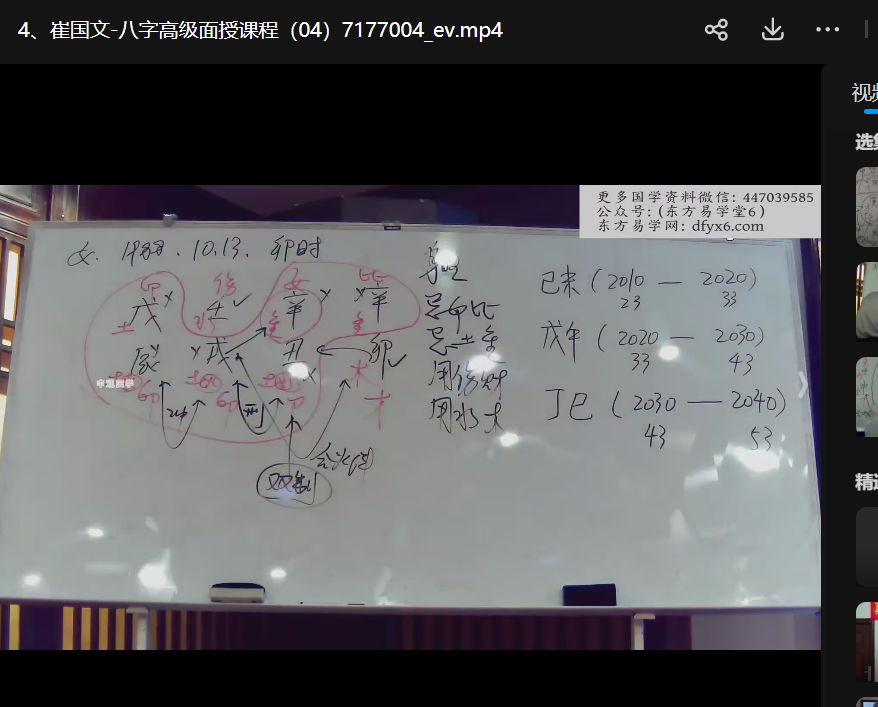 4、崔国文-八字高级面授课程（04）7177004_ev.mp4
视频
选集
更多国学资料微信：447039585
公众号：(东方易学堂6)
东方易学网：dfyx6.com
女. 10.13. 卯时
伤 女 比
戊 壬 辛 辛
辰 戌 丑 卯
土 金
土 土 土 木
印 印 卩 才
冲 刑
合火
双制
忌印比
忌土金
用伤财
用水木
己未 (2010 — 2020)
23 33
戊午 (2020 — 2030)
33 43
丁巳 (2030 — 2040)
43 53